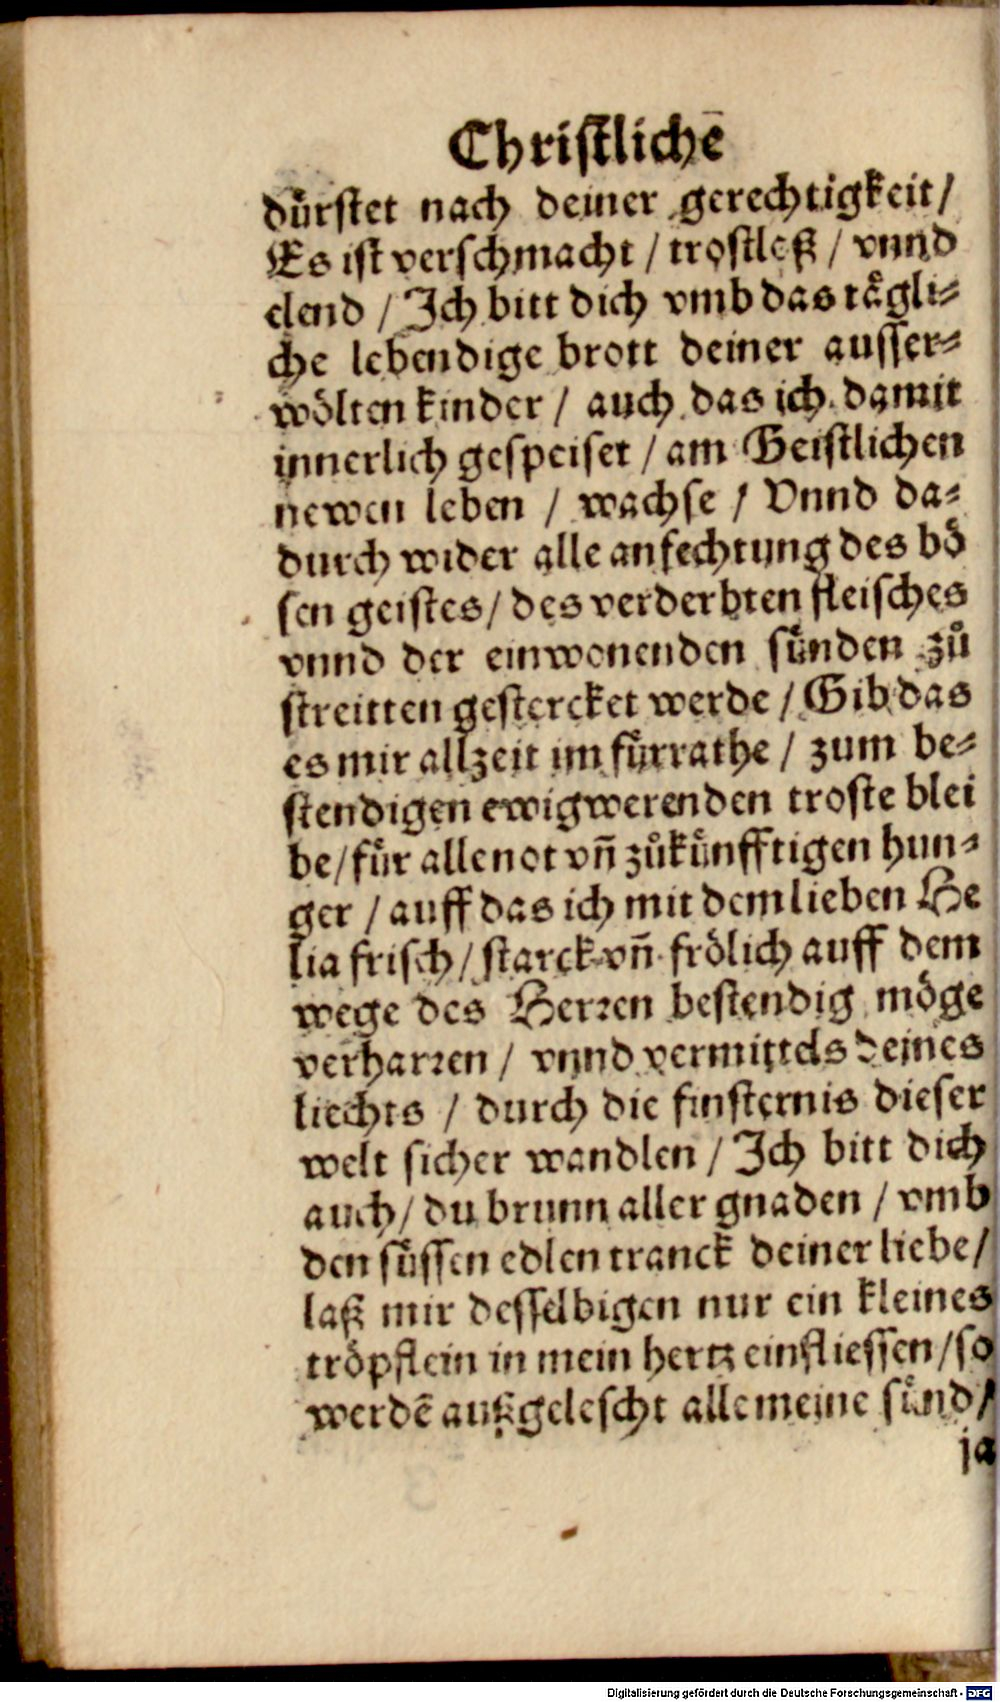 Christlichē
dürstet nach deiner gerechtigkeit /
Es ist verschmacht / trostloß / vnnd
elend / Ich bitt dich vmb das tägli⸗
che lebendige brott deiner ausser⸗
wölten kinder / auch das ich damit
innerlich gespeiset / am Geistlichen
newen leben / wachse / Vnnd da⸗
durch wider alle anfechtung des bö
sen geistes / des verderbten fleisches
vnnd der einwonenden sünden zů
streitten gestercket werde / Gib das
es mir allzeit im fürrathe / zum be⸗
stendigen ewigwerenden troste blei
be / für alle not vñ zůkünfftigen hun⸗
ger / auff das ich mit dem lieben He
lia frisch / starck vñ frölich auff dem
wege des Herren bestendig möge
verharren / vnnd vermittels deines
liechts / durch die finsternis dieser
welt sicher wandlen / Ich bitt dich
auch / du brunn aller gnaden / vmb
den süssen edlen tranck deiner liebe /
laß mir desselbigen nur ein kleines
tröpflein in mein hertz einfliessen / so
werdē außgelescht alle meine sünd /
ja
Digitalisierung gefördert durch die Deutsche Forschungsgemeinschaft - DFG